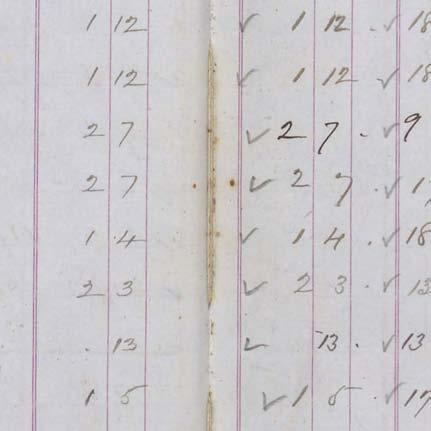 1 12 ✓ 1 12 . ✓ 18
1 12 ✓ 1 12 ✓ 18
2 7 ✓ 2 7 . ✓ 9
2 7 ✓ 2 7 . ✓
1 4 ✓ 1 4 . ✓ 18
2 3 ✓ 2 3 . ✓ 13
. 13 ✓ 13 . ✓ 13
1 5 ✓ 1 5 . ✓ 17